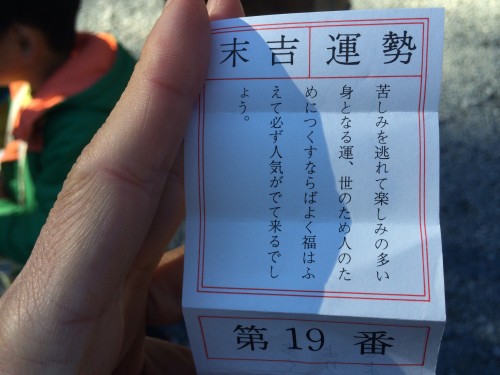 運勢
末吉
苦しみを逃れて楽しみの多い
身となる運、世のため人のた
めにつくすならばよく福はふ
えて必ず人気がでて来るでし
ょう。
第19番